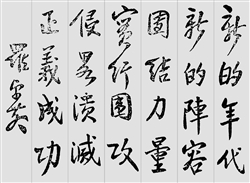 新的年代
新的陣容
團結力量
實行圍攻
侵畧潰滅
正義成功